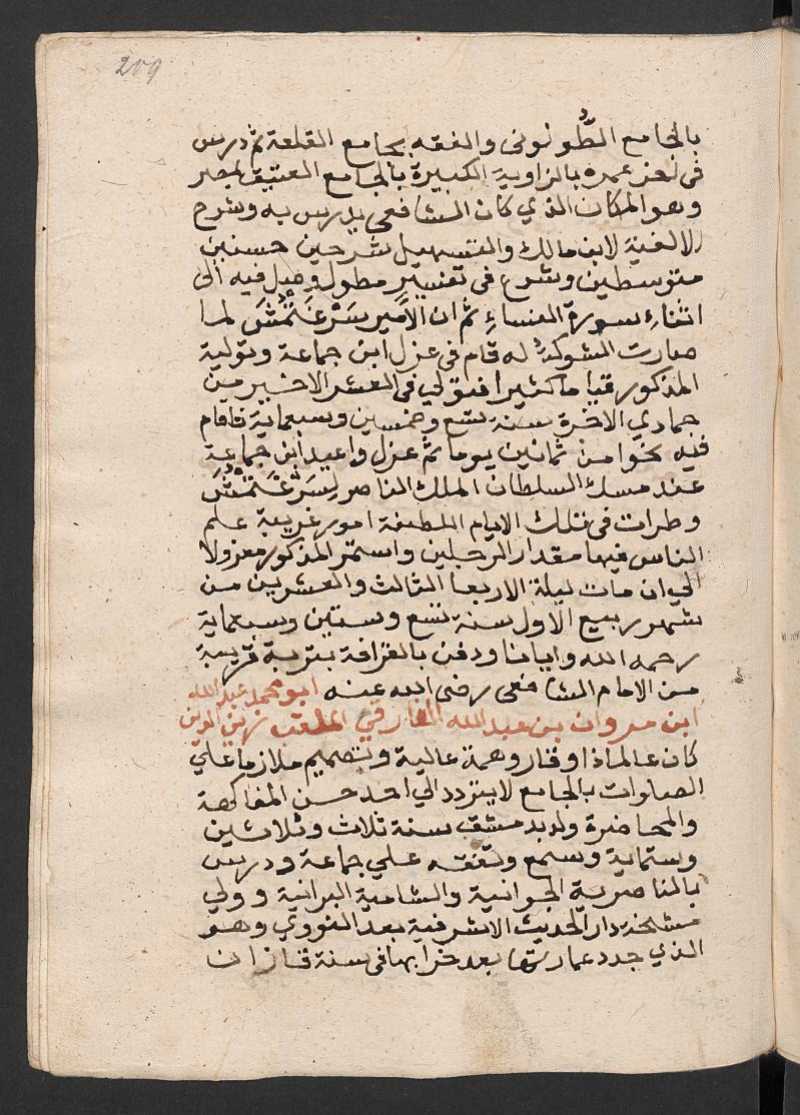 209
بالجامع الطُّولونى والفقه بجامع القلعة ثم درس
فى اخر عمره بالزاوية الكبيرة بالجامع العتيق بمصر
وهو المكان الذي كان الشافعى يدرس به وشرح
الالفية لابن مالك والتسهيل شرحين حسنين
متوسطين وشرع فى تفسير مطول وصل فيه الى
اثناء سورة النساء ثم ان الأمير سَرْغَتْمُشَ لما
صارت الشوكة له قام فى عزل ابن جماعة وتولية
المذكور قياما كثيرا فتولي فى العشر الاخير من
جمادي الاخرة سنة تسع وخمسين وسبعماية فاقام
فيه نحوا من ثمانين يوما ثم عزل واعيد ابن جماعة
عند مسك السلطان الملك الناصر لِسَرْغَتْمُشَ
وطرات فى تلك الايام اللطيفة امور غريبة علم
الناس فيها مقدار الرجلين واستمر المذكور معزولا
الي ان مات ليلة الاربعا الثالث والعشرين من
شهر ربيع الاول سنة تسع وستين وسبعماية
رحمه الله وايانا ودفن بالقرافة بتربة قريبة
من الامام الشافعى رضى الله عنه ابو محمد عبد الله
ابن مروان بن عبد الله الفارقي الملقب زين الدين
كان عالما ذا وقار وهمة عالية وتصميم ملازما علي
الصلوات بالجامع لا يتردد الي احد حسن المفاكهة
والمحاضرة ولد بدمشق سنة ثلاث وثلاثين
وستماية وسمع وتفقه علي جماعة ودرس
بالناصرية الجوانية والشامية البرانية وولي
مشيخة دار الحديث الاشرفية بعد النووي وهو
الذي جدد عمارتها بعد خرابها فى سنة قازان